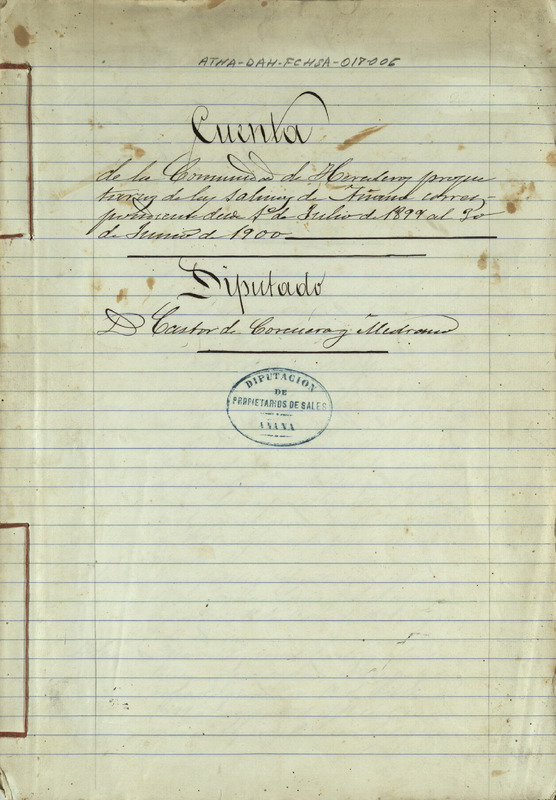 ATHA-DAH-FCHSA-017-006
Cuenta
de la Comunidad de Herederos propie
tarios de las salinas de Añana corres-
pondiente desde 1º de Julio de 1899 al 30
de Junio de 1900
Diputado
D Castor de Corcuera y Medrano
DIPUTACION
DE
PROPIETARIOS DE SALES
AÑANA